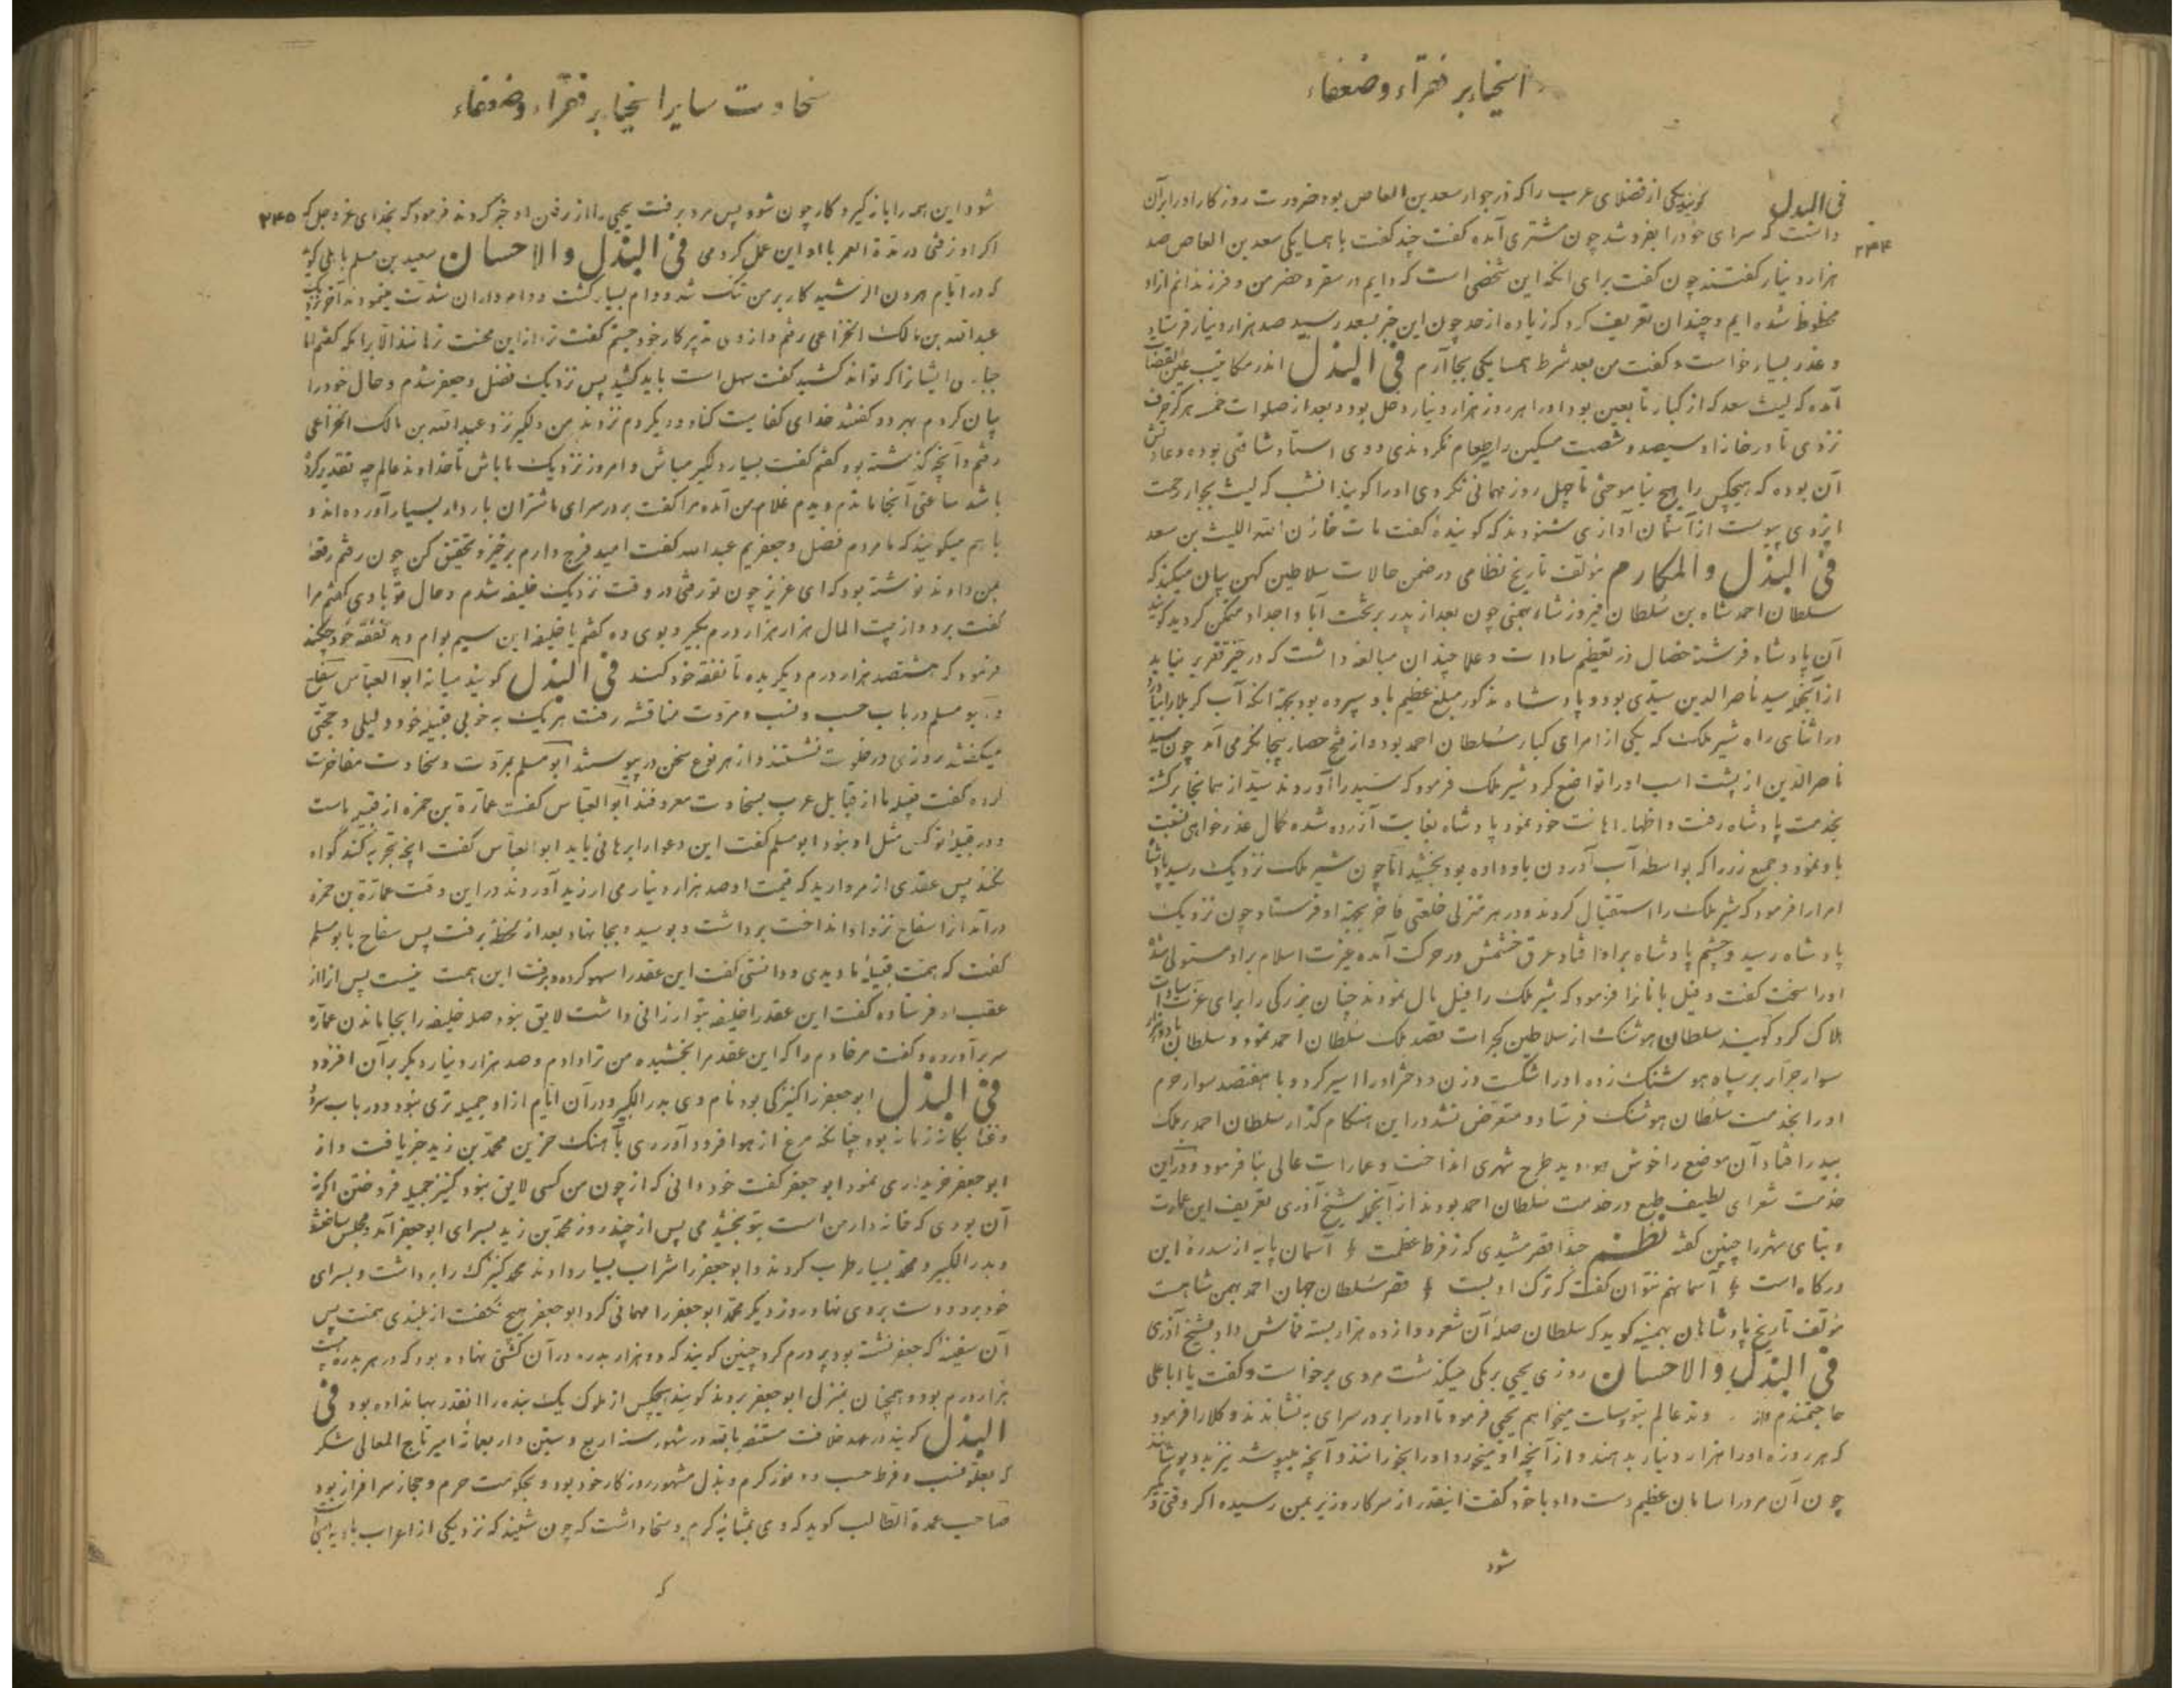 اسخیاء بر فقراء و ضعفاء
فی البذل کویند یکی از فضلای عرب را که در جوار سعد بن العاص بود ضرورت روزکار او را بر آن
۲۴۴
داشت که سرای خود را بفروشد چون مشتری آمده کفت چند کفت با همسایکی سعد بن العاص صد
هزار دینار کفتند چون کفت برای انکه این شخصی است که دایم در سفر و حضر من و فرزندانم ازاو
محظوظ شده ایم و چندان تعریف کرد که زیاده از حد چون این خبر بسعد رسید صد هزار دینار فرستاد
و عذر بسیار خواست و کفت من بعد شرط همسایکی بجا آرم فی البذل اندر مکاتیب
آمده که لیث سعد که از کبار تابعین بود او را هر روز هزار دینار دخل بود و بعد از صلوات خمسه هرکز حرف
نزدی تا در خانه او سیصد و شصت مسکین را طعام نکردندی و وی استاد شافعی بوده و عادتش
آن بوده که هیچکس را هیچ نیاموختی تا چهل روز مهمانی نکردی او را کویند انشب که لیث بجوار رحمت
ایزدی پیوست از آسمان آوازی شنودند که کوینده کفت مات خازن الله اللیث بن سعد
فی البذل والمکارم مؤلف تاریخ نظامی در ضمن حالات سلاطین کهن بیان میکند که
سلطان احمد شاه بن سلطان فیروز شاه بهمنی چون بعد از پدر بر تخت آبا و اجداد متمکن کردید کویند
آن پادشاه فرشته خصال در تعظیم سادات و علما چندان مبالغه داشت که در حیز تقریر نیاید
از آنجمله سید ناصر الدین سیدی بود و پادشاه مذکور مبلغ عظیم باو سپرده بود بجهة انکه آب کربلا را بیاورد
در اثنای راه شیر ملک که یکی از امرای کبار سلطان احمد بود و از فتح حصار بیجانکر می آمد چون سید
ناصر الدین از پشت اسب او را تواضع کرد شیر ملک فرمود که سید را آوردند سید از همانجا برکشته
بخدمت پادشاه رفت و اظهار اهانت خود نمود پادشاه بغایت آزرده شده کمال عذر خواهی نسبت
باو نمود و جمیع زر را که بواسطه آب آوردن باو داده بود بخشید اما چون شیر ملک نزدیک رسید پادشاه
امرا را فرمود که شیر ملک را استقبال کردند و در هر منزلی خلعتی فاخر بجهة او فرستاد و چون نزدیک
پادشاه رسید و چشم پادشاه بر او افتاد عرق خشمش در حرکت آمده غیرت اسلام بر او مستولی شد
او را سخت کفت و فیل بانان را فرمود که شیر ملک را فیل مال نمودند چنان بزرکی را برای عزت سادات
هلاک کرد کویند سلطان هوشنک از سلاطین کجرات قصد ملک سلطان احمد نمود و سلطان با دو هزار
سوار جرار بر سپاه هوشنک زده او را شکست و زن و دختر او را اسیر کرد و با هفتصد سوار حرم
او را بخدمت سلطان هوشنک فرستاد و متعرض نشد در این هنکام کذار سلطان احمد بر ملک
بیدر افتاد آن موضع را خوش هوا دید طرح شهری انداخت و عمارات عالی بنا فرمود و در این
خدمت شعرای لطیف طبع در خدمت سلطان احمد بودند از آنجمله شیخ آذری تعریف این عمارت
و بنای شهر را چنین کفته نظم حبذا قصر مشیدی که ز فرط عظمت آسمان پایه از سدره این
درکاه است آسمانهم نتوان کفت که ترک ادبست قصر سلطان جهان احمد بهمن شاهست
مؤلف تاریخ پادشاهان بهمنیه کوید که سلطان صله آن شعر دوازده هزار بسته قماش داد بشیخ آذری
فی البذل والاحسان روزی یحیی برمکی میکذشت مردی برخاست و کفت یا ابا علی
حاجتمندم و از خداوند عالم بتو وسیلت میخواهم یحیی فرمود تا او را بر در سرای بنشاندند و کلا را فرمود
که هر روزه او را هزار دینار بدهند و از آنچه او میخورد او را بخورانند و آنچه میپوشد نیز بدو پوشانند
چون آن مرد را سامان عظیم دست داد با خود کفت اینقدر از سرکار وزیر بمن رسیده اکر وقتی دکر
شود
سخاوت سایر اسخیا بر فقراء و ضعفاء
شود این همه را باز کیرد کار چون شود پس مرد برفت یحیی را از رفتن او خبر کردند فرمود که بخدای عز و جل که
۲۴۵
اکر او نرفتی در مدة العمر با او این عمل کردمی فی البذل والاحسان سعید بن مسلم باهلی کوید
که در ایام هرون الرشید کار بر من تنک شد و وام بسیار کشت و وام داران شدت مینمودند آخر نزدیک
عبدالله بن مالک الخزاعی رفتم و از وی تدبیر کار خود جستم کفت ترا از این محنت نرهاند الا برامکه کفتم اما
جباری ایشان را که تواند کشید کفت سهل است باید کشید پس نزدیک فضل و جعفر شدم و حال خود را
بیان کردم بهر دو کفتند خدای کفایت کناد و دیکر دم نزدند من دلکیر نزد عبدالله بن مالک الخزاعی
رفتم و آنچه کذشته بود کفتم کفت بسیار دلکیر مباش و امروز نزدیک ما باش تا خداوند عالم چه تقدیر کرده
باشد ساعتی آنجا ماندم دیدم غلام من آمده مرا کفت بر در سرای ما شتران باردار بسیار آورده اند و
باهم میکویند که ما مردم فضل و جعفریم عبدالله کفت امید فرج دارم برخیز و تحقیق کن چون رفتم رقعه
بمن دادند نوشته بود که ای عزیز چون تو رفتی در وقت نزدیک خلیفه شدم و حال تو با وی کفتم مرا
کفت برو و از بیت المال هزار هزار درم بکیر و بوی ده کفتم یا خلیفه این سیم بوام دهد نفقه خود چکند
فرمود که هشتصد هزار درم دیکر بده تا نفقه خود کند فی البذل کویند میانه ابو العباس سفاح
و ابو مسلم در باب حسب و نسب و مروت مناقشه رفت هر یک به خوبی قبیله خود دلیلی و حجتی
میکفتند روزی در خلوت نشستند و از هر نوع سخن در پیوستند ابو مسلم بمروت و سخاوت مفاخرت
کرده کفت قبیله ما از قبایل عرب بسخاوت معروفند ابو العباس کفت عمارة بن حمزه از قبیله ماست
و در قبیله تو کس مثل او نبود ابو مسلم کفت این دعوا را برهانی باید ابو العباس کفت آنچه تجربه کند کواه
نکند پس عقدی از مروارید که قیمت او صد هزار دینار می ارزید آوردند در این وقت عمارة بن حمزه
درآمد آنرا سفاح نزد او انداخت برداشت و بوسید و بجا نهاد بعد از لحظه برفت پس سفاح با بو مسلم
کفت که همت قبیله ما دیدی و دانستی کفت این عقد را سهو کرده و برفت این همت نیست پس آنرا از
عقب او فرستاده کفت این عقد را خلیفه بتو ارزانی داشت لایق نبود صله خلیفه را بجا ماندن عماره
سر برآورده و کفت مر خادم را که این عقد مرا بخشیده من ترا دادم و صد هزار دینار دیکر بر آن افزود
فی البذل ابو جعفر را کنیزکی بود نام وی بدر الکبیر و در آن ایام از او جمیله تری نبود و در باب سرود
و غنا یکانه زمانه بود چنانکه مرغ از هوا فرود آوردی بآهنک حزین محمد بن زید خبر یافت و از
ابو جعفر خریداری نمود ابو جعفر کفت خود دانی که از چون من کسی لایق نبود کنیز جمیله فروختن اکر نه
آن بودی که خانه دار من است بتو بخشیدمی پس از چند روز محمد بن زید بسرای ابو جعفر آمد و مجلس ساختند
و بدر الکبیر و محمد بسیار طرب کردند و ابو جعفر را شراب بسیار دادند محمد کنیزک را برداشت و بسرای
خود برد و دست بر وی نهاد روز دیکر محمد ابو جعفر را مهمانی کرد ابو جعفر هیچ نکفت از بلندی همت پس
آن سفینه که جعفر نشسته بود پر درم کرد چنین کویند که دو هزار بدره در آن کشتی نهاده بود که در هر بدره بیست
هزار درم بود و همچنان بمنزل ابو جعفر بردند کویند هیچکس از ملوک یک بنده را انقدر بها نداده بود فی
البذل کویند در عهد خلافت مستنصر بالله در شهور سنه اربع و ستین و اربعمائه امیر تاج المعالی شکر
که بعلو نسب و فرط حسب و وفور کرم و بذل مشهور روزکار خود بود و بحکومت حرم و حجاز سرافراز بود
صاحب عمدة الطالب کوید که وی بمثابه کرم و سخا داشت که چون شنید که نزد یکی از اعراب بادیه
که